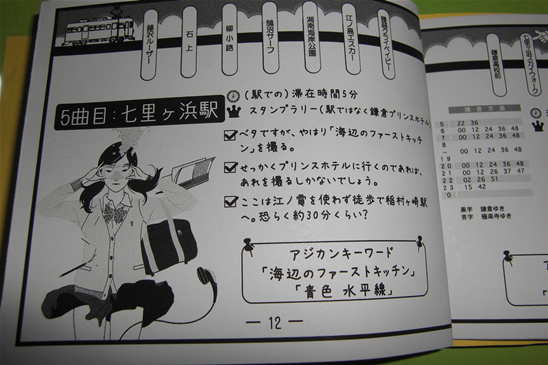 藤沢ルーザー
石上
柳小路
鵠沼サーフ
湘南海岸公園
江ノ島エスカー
腰越クライベイビー
5曲目:七里ヶ浜駅
(駅での)滞在時間5分
スタンプラリー(駅ではなく鎌倉プリンスホテル)
ベタですが、やはり「海辺のファーストキッチ
ン」を撮る。
せっかくプリンスホテルに行くのであれば、
あれを撮るしかないでしょう。
ここは江ノ電を使わず徒歩で稲村ヶ崎駅
へ。恐らく約30分くらい?
アジカンキーワード
「海辺のファーストキッチン」
「青色 水平線」
12
鎌倉高校前
七里ヶ浜スカイウォーク
鎌倉方面
5 22 36
6 00 12 24 36 48
7 00 12 24 36 48
8 00 12 24 36 48
~
19 00 12 24 36 48
20 00 12 24 36 48
21 00 12 24 36 48
22 02 26 51
23 15 42
0
黒字 鎌倉ゆき
青字 極楽寺ゆき